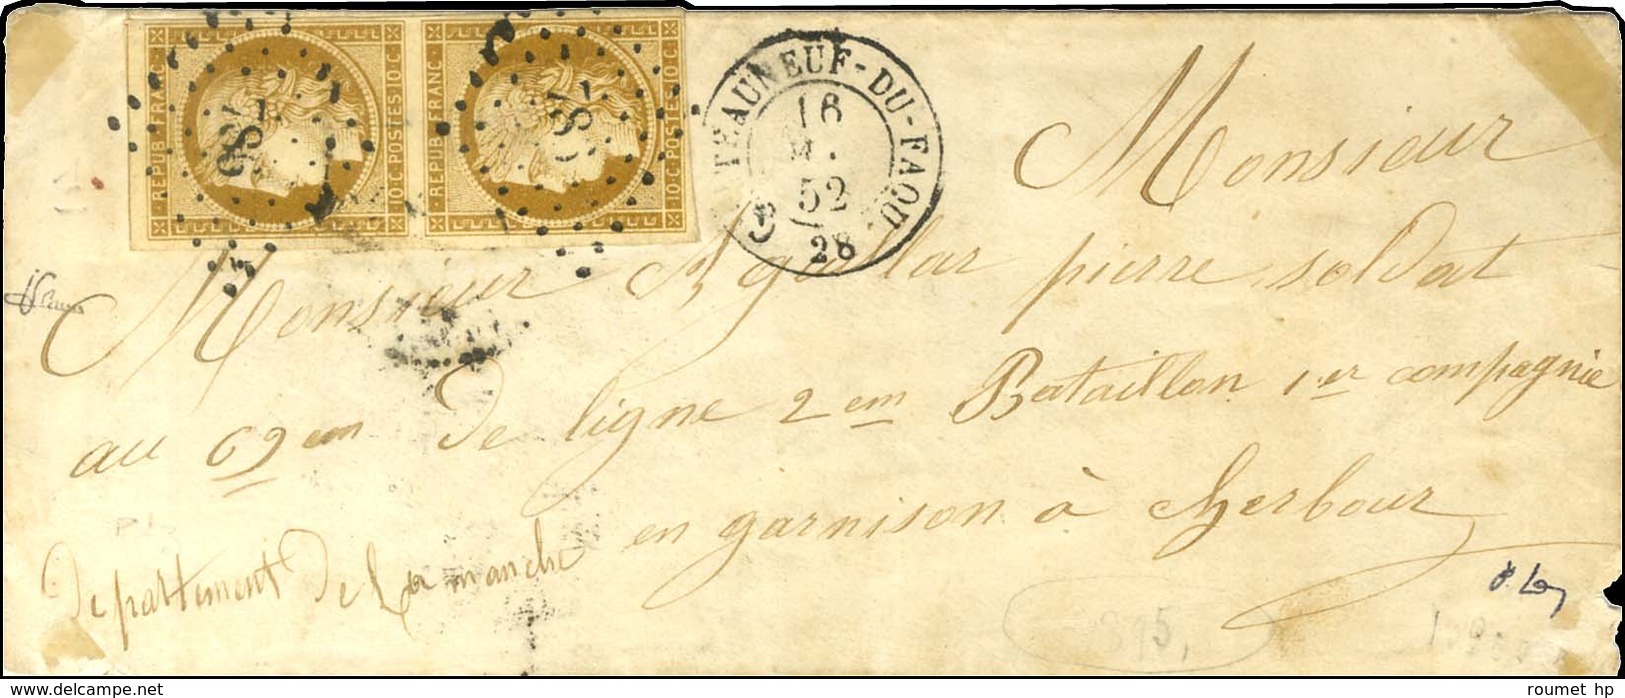 REPUB FRANC
10 C. POSTES 10 C.
784
REPUB FRANC
10 C. POSTES 10 C.
TEAUNEUF-DU-FAOU
16
52
28
Monsieur
Monsieur pierre soldat
au 69em De ligne 2em Bataillon 1er compagnie
en garnison à cherbour
Departement De La manche
815,
roumet hp
© delcampe.net